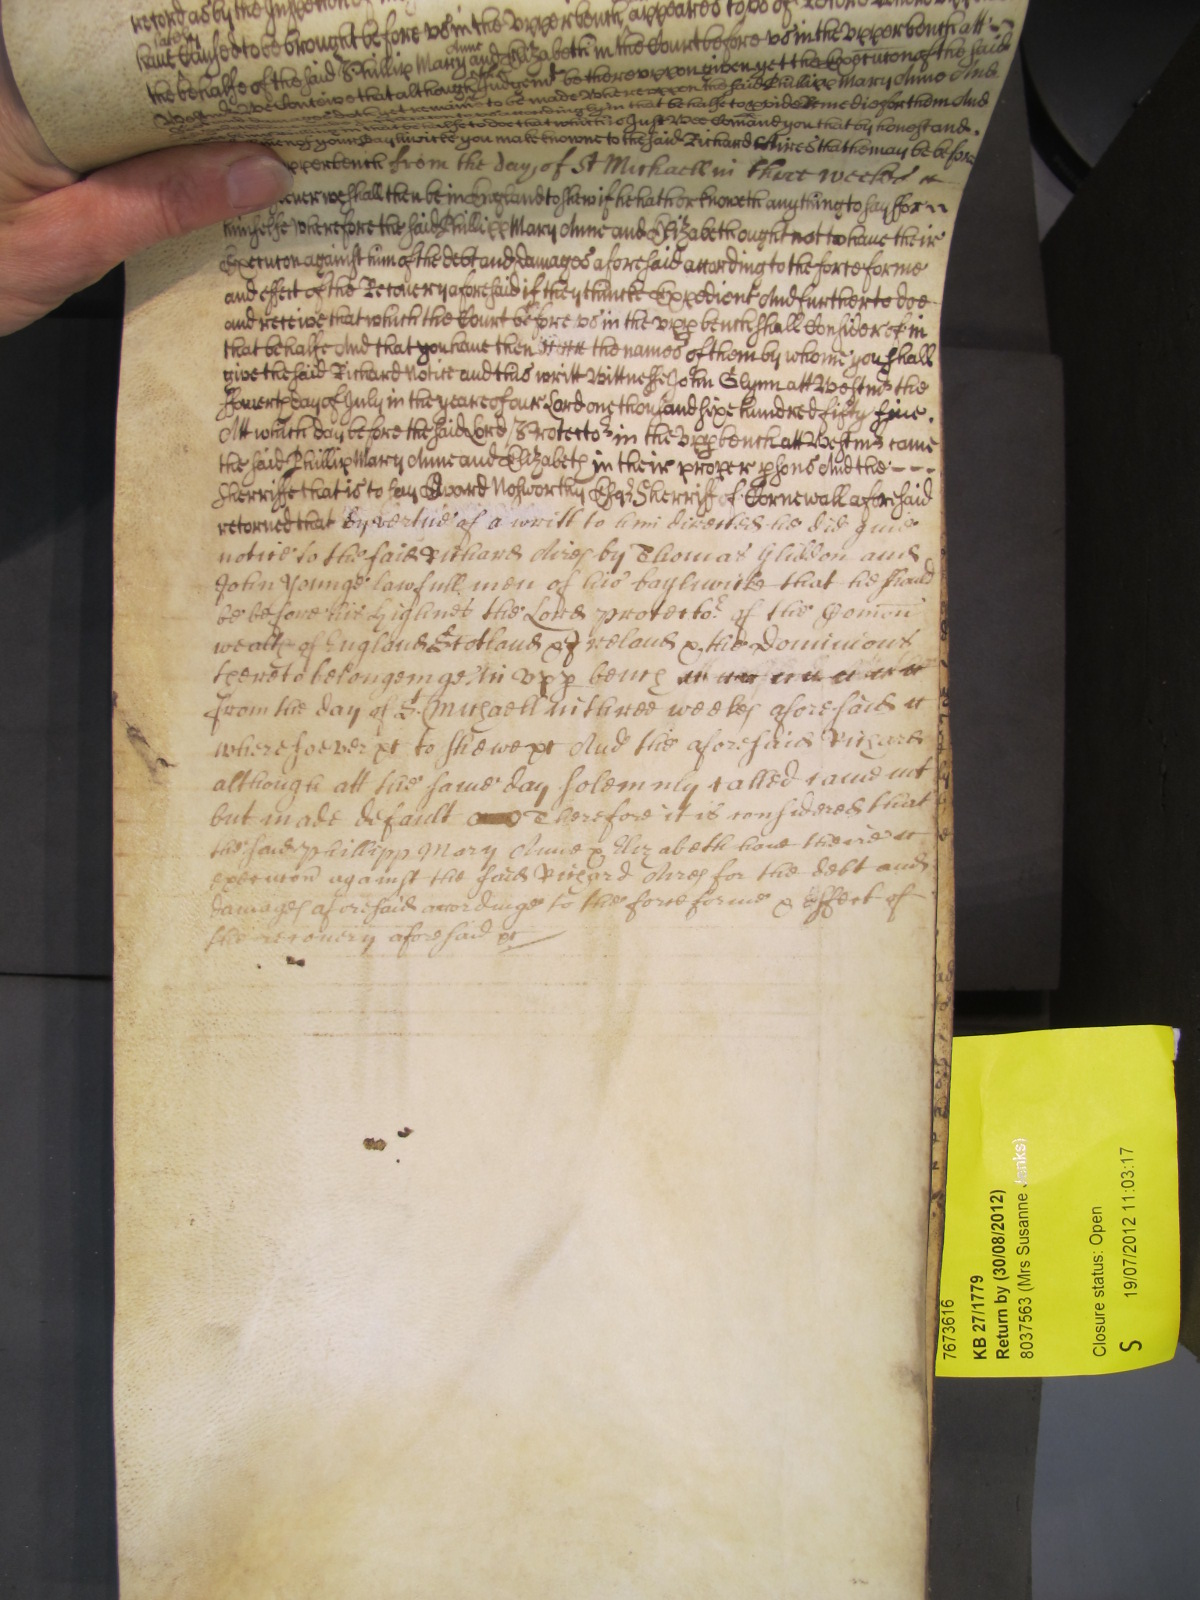 record as by the Inspection of appeares to vs of Record
have lately Caused to be brought before vs in the vpper bench
the behalfe of the said Phillip Mary Anne and Elizabeth in the Court before vs in the vpper bench att
Wee doe that although Judgemt be therevppon given yet the Execucon of the said
remaines to be made Wherevppon the said Phillipp Mary Anne And
in that behalfe to provide Remedie for them And
in that behalfe to doe that which is Just Wee Comand you that by honest and
your Bayliwicke you make knowne to the said Richard Aires that he may be before
vpper bench from the day of St Michaell in three weekes
wee shall then be in England to shew if he hath or knoweth any thing to say for
himselfe Wherefore the said Phillipp Mary Anne and Elizabeth ought not to have their
Execucon against him of the debt and damages aforesaid according to the force forme
and effect of the Recovery aforesaid if they thincke Expedient And further to doe
and receive that which the Court before vs in the vpp bench shall Consider of in
that behalfe And that you have then the names of them by whome you shall
give the said Richard Notice and this writt Wittnesse John Glynn att Westmr the
fowerth day of July in the yeare of our Lord one thousand sixe hundred fifty five.
Att which day before the said Lord Protector in the vpp bench att Westmr came
the said Phillip Mary Anne and Elizabeth in their proper psons And the
Sherriffe that is to say Edward Nosworthy Esqr Sherriff of Cornewall aforesaid
retorned that by vertue of a writt to him directed he did give
notice to the said Richard Aires by Thomas Glibbon and
John Younge lawfull men of his baylywicke that he should
be before his Highnes the Lord protector of the Comon
wealth of England Scotland & Ireland & the Dominions
thereto belongeinge in vpp bench
from the day of St Michaell in three weekes aforesaid
wheresoever &c to shewe &c And the aforesaid Richard
although att the same day solemnly called came not
but made default Therefore it is considered that
the said Phillipp Mary Anne & Elizabeth have their
execucon against the said Richard Aires for the debt and
damages aforesaid accordinge to the force forme & effect of
the recovery aforesaid &c
7673616
KB 27/1779
Return by (30/08/2012)
8037563 (Mrs Susanne Jenks)
Closure status: Open
S 19/07/2012 11:03:17